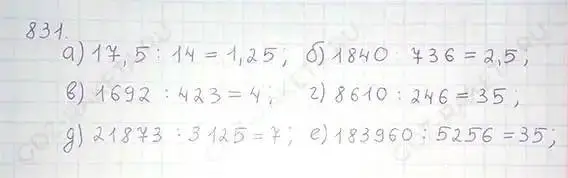 831.
а) 17,5 : 14 = 1,25; б) 1840 : 736 = 2,5;
в) 1692 : 423 = 4; г) 8610 : 246 = 35;
д) 21873 : 3125 = 7; е) 183960 : 5256 = 35;